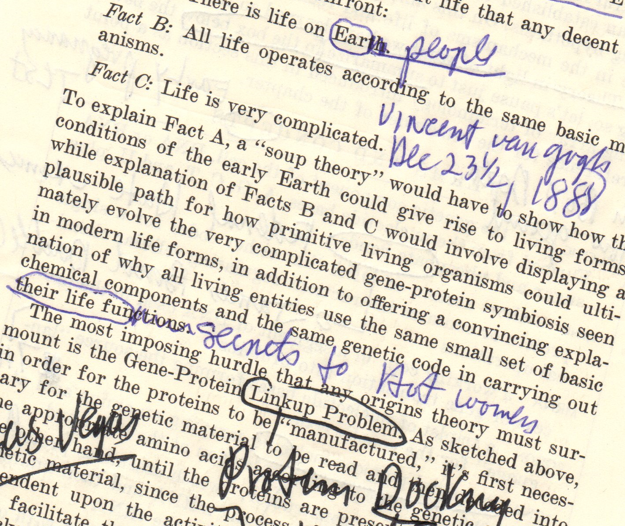 here is life on Earth people
Fact B: All life operates according to the same basic m
anisms.
Fact C: Life is very complicated.
Vincent van gogh
Dec 23½, 1888
To explain Fact A, a “soup theory” would have to show how th
conditions of the early Earth could give rise to living forms
while explanation of Facts B and C would involve displaying a
plausible path for how primitive living organisms could ulti-
mately evolve the very complicated gene-protein symbiosis seen
in modern life forms, in addition to offering a convincing expla-
nation of why all living entities use the same small set of basic
chemical components and the same genetic code in carrying out
their life functions.
secrets to Hot women
The most imposing hurdle that any origins theory must sur-
mount is the Gene-Protein Linkup Problem. As sketched above,
in order for the proteins to be “manufactured,” it's first neces-
ary for the genetic material to be read and into
amino acids according to the genetic
Vegas
hand, until the proteins are presen
Protein Docking
netic material, since the process
endent upon the activi
facilitate th